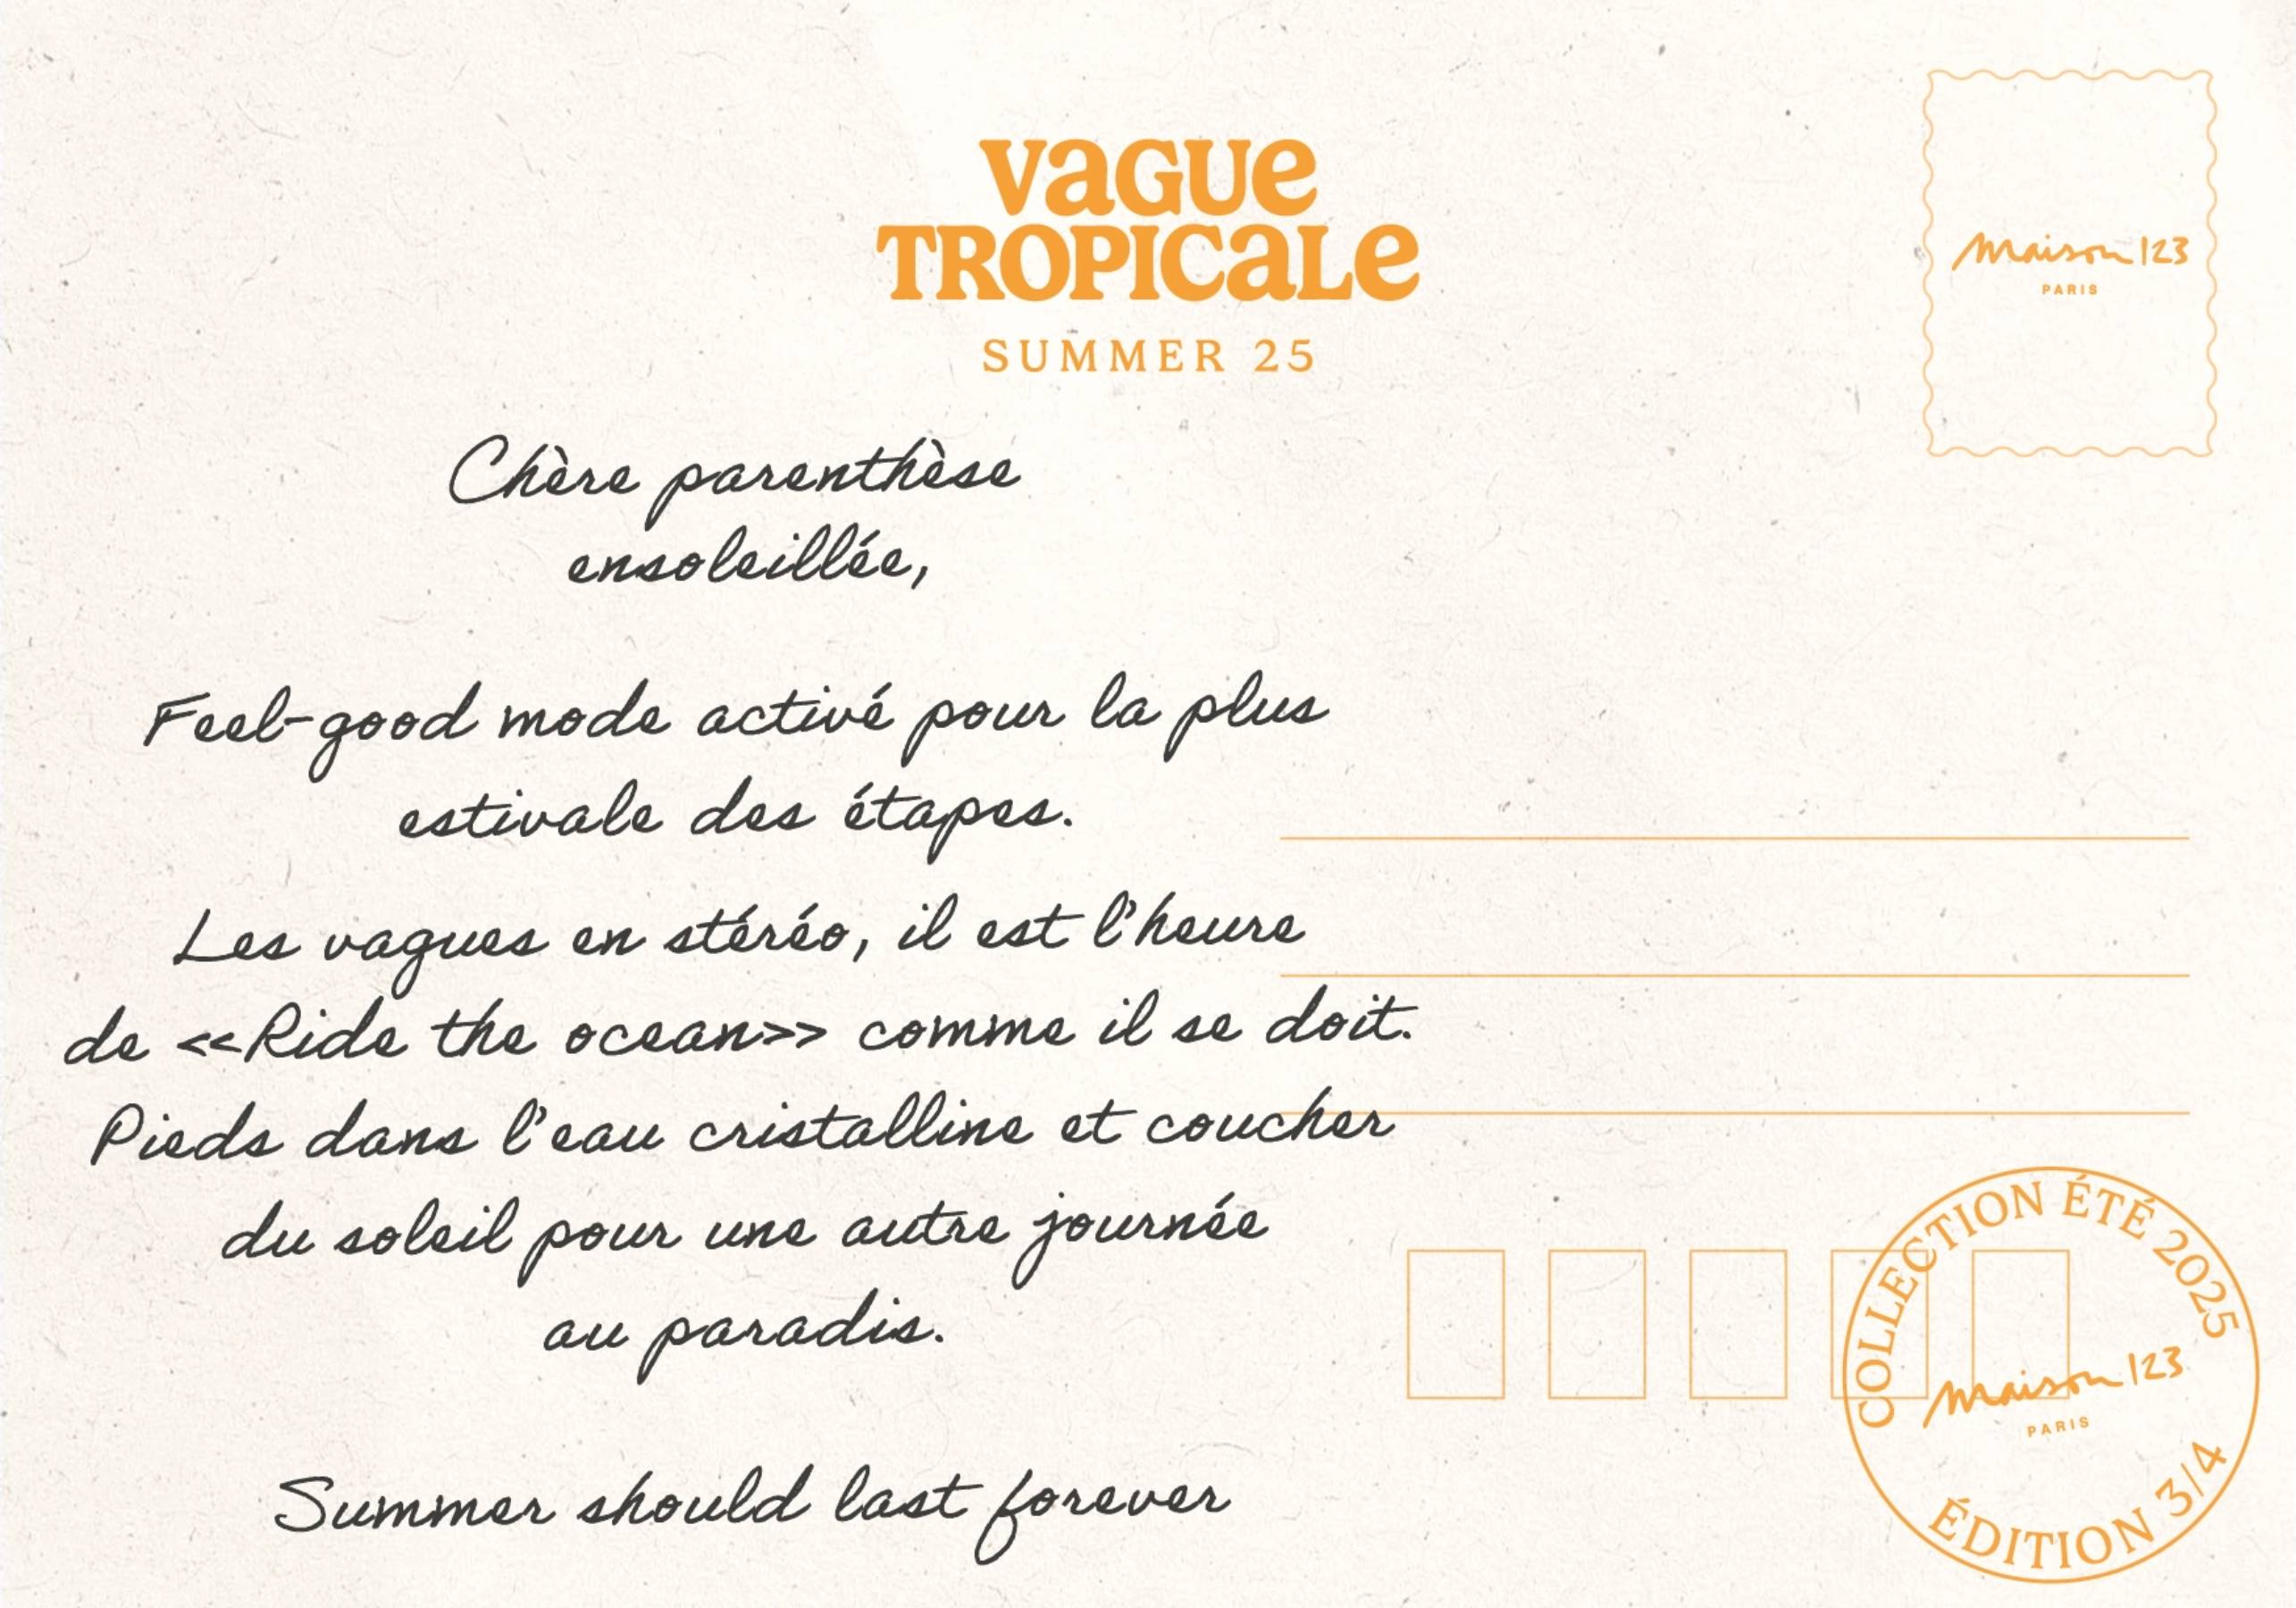 vaGUe
TROPICaLe
SUMMER 25
maison 123
PARIS
Chère parenthèse
ensoleillée,
Feel-good mode activé pour la plus
estivale des étapes.
Les vagues en stéréo, il est l'heure
de <<Ride the ocean>> comme il se doit.
Pieds dans l'eau cristalline et coucher
du soleil pour une autre journée
au paradis.
Summer should last forever
COLLECTION ÉTÉ 2025
maison 123
PARIS
ÉDITION 3/4